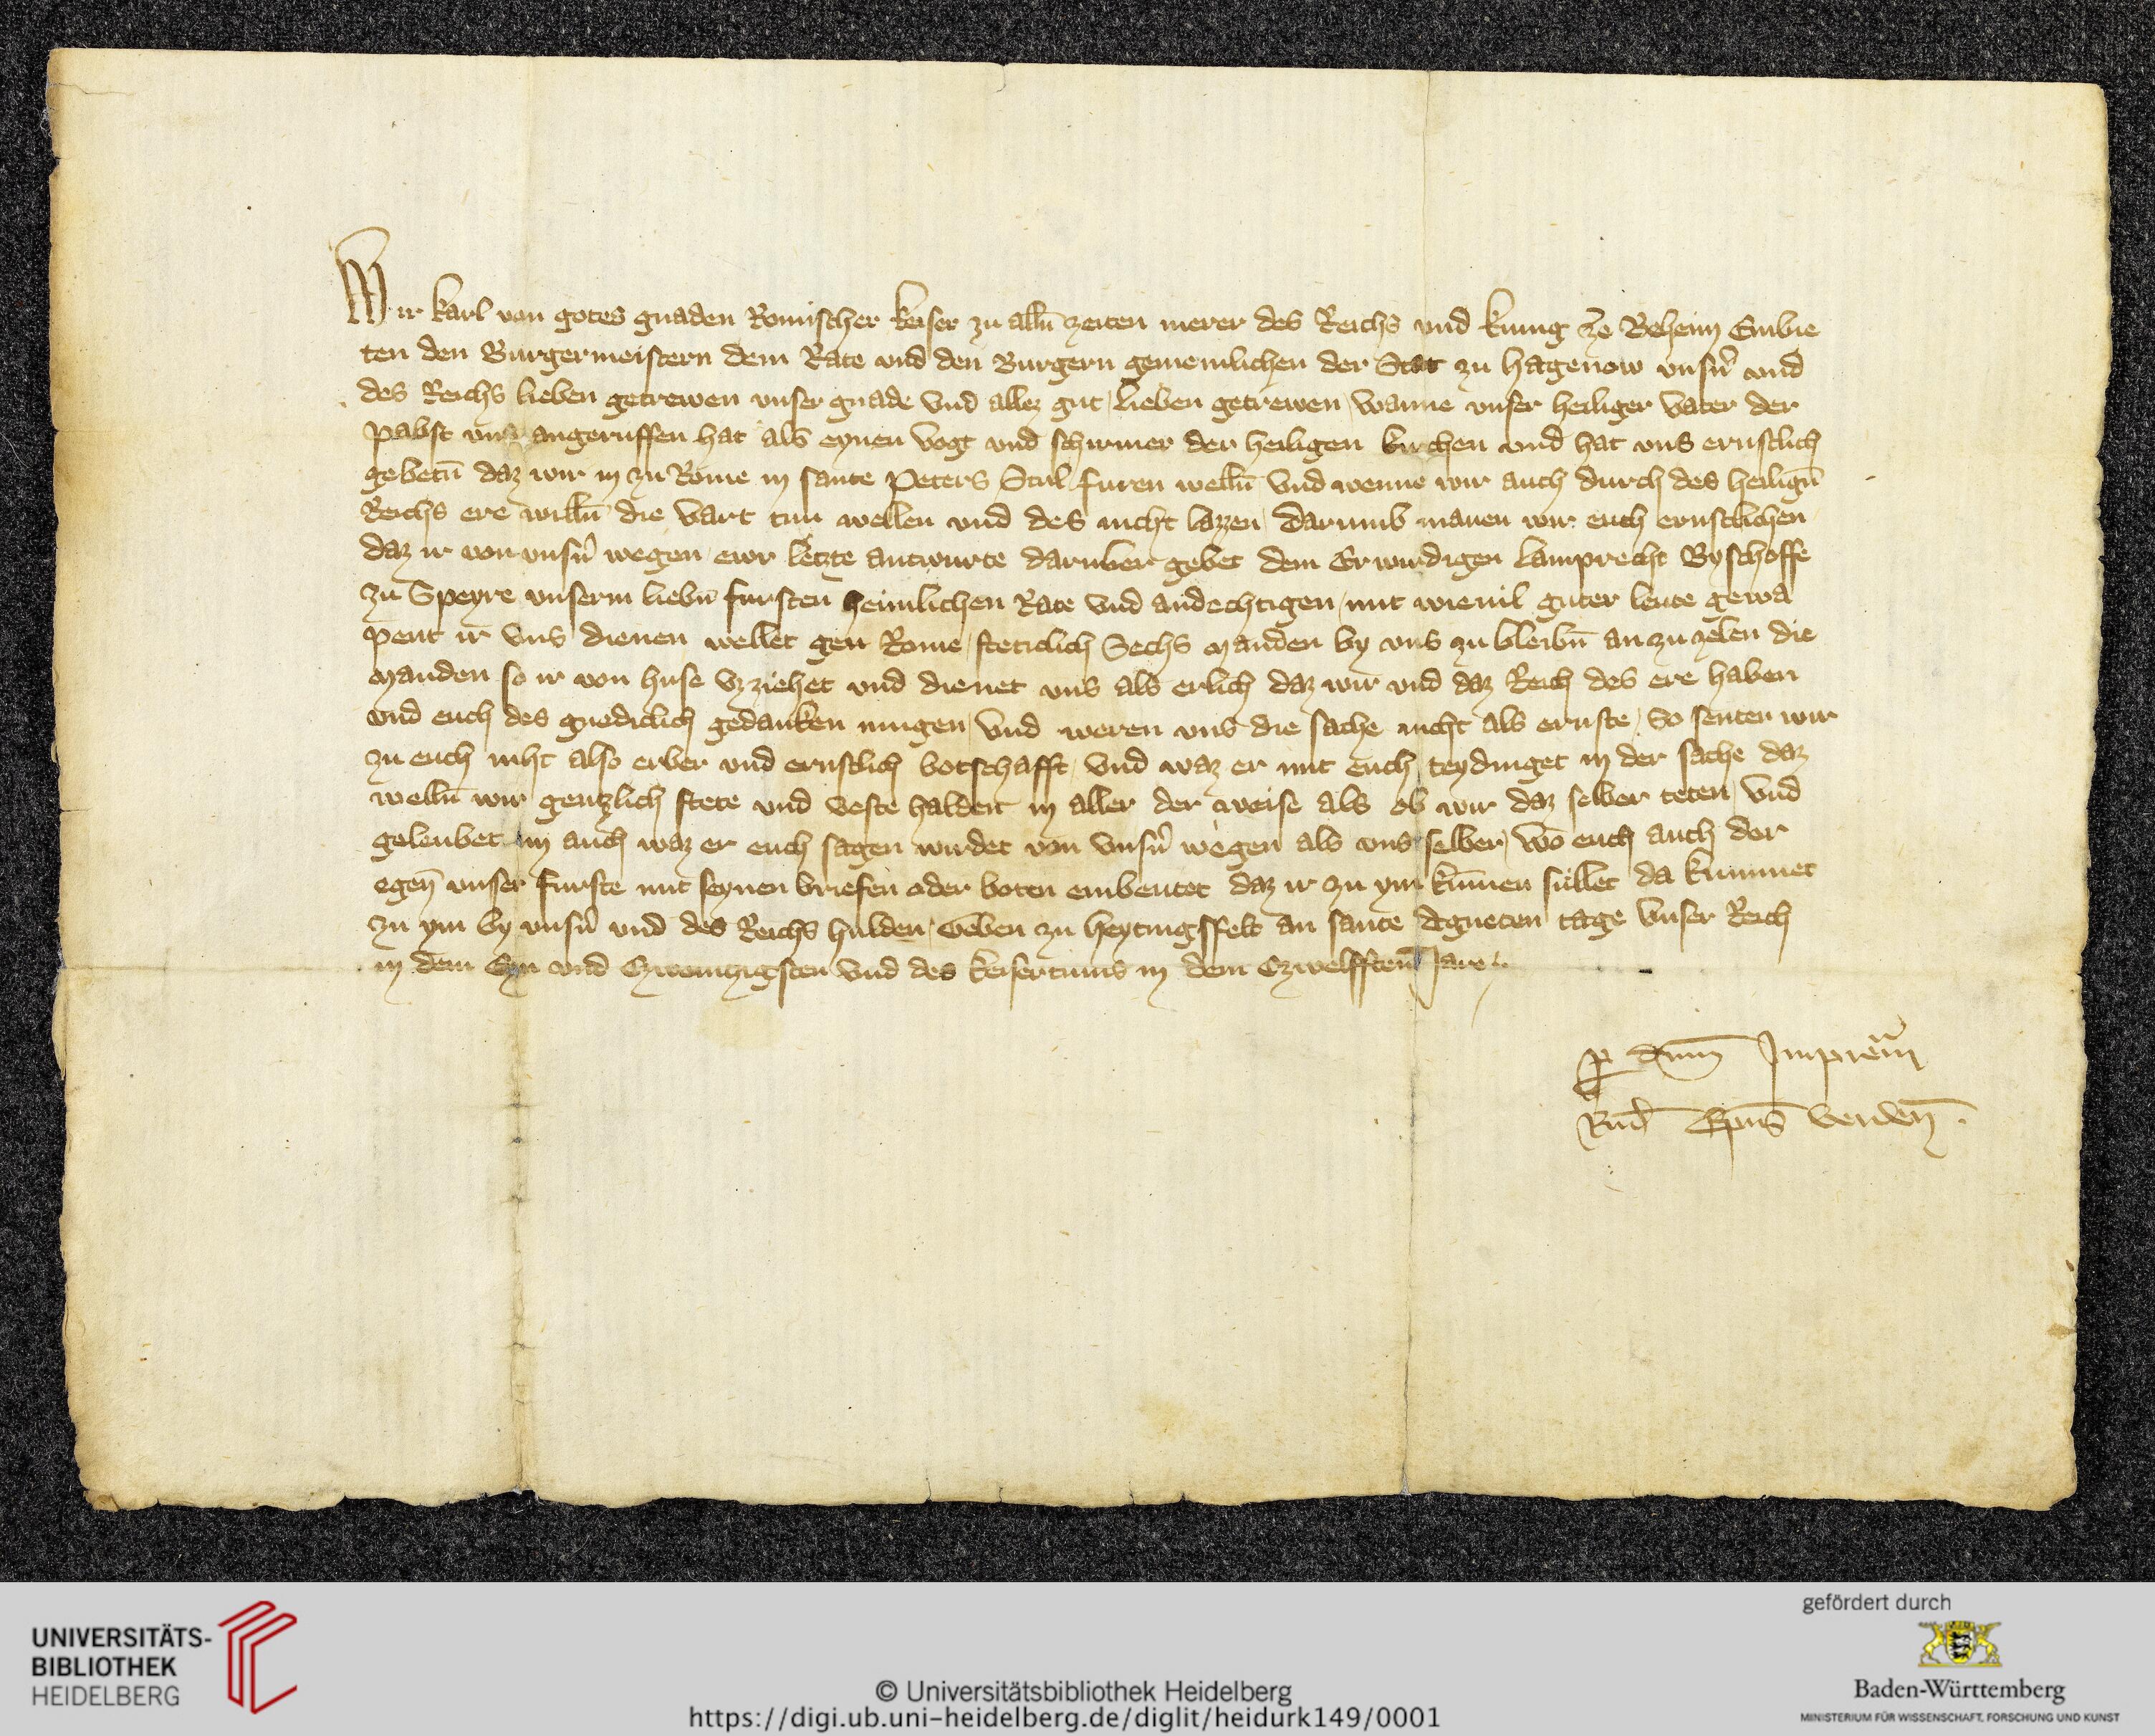 Wir karl von gotes gnaden Romischer keiser zu alln̄ zeiten merer des Reichs vnd kunig ze Beheim Embie
ten den Burgermeistern dem Rate vnd den Burgern gemeinlichen der Stat zu hagenow vnsn̄ vnd
des Reichs lieben getrewen vnser gnade vnd allez gut, lieben getrewen, wanne vnser heiliger vater der
Pabst vns angeruffen hat als eynen vogt vnd schirmer der heiligen kirchen vnd hat vns ernstlich
gebetn̄ daz wir in zu Rome in sante Peters Stul furen welln̄ vnd wenne wir auch durch des heilign̄
Reichs ere willn̄ die vart tun wellen vnd des nicht lazzen, darumb manen wir euch ernstlichen
daz ir von vnsn̄ wegen ewr letzte antwurte daruber gebet dem Erwirdigen lamprecht Byschoffe
zu Speyre vnserm liebn̄ fursten heimlichen Rate vnd andechtigen, mit wieuil guter leute gewa
pent ir vns dienen wellet gen Rome, steticlich Sechs manden by vns zu bleibn̄ an zu zelen die
manden so ir von huse vzziehet vnd dienet vns als erlich daz wir vnd daz Reich des ere haben
vnd euch des gnediclich gedanken mugen, vnd weren vns die sache nicht als ernste, So senten wir
zu euch niht also erber vnd ernstlich botschafft, vnd waz er mit euch teydinget in der sache daz
welln̄ wir gentzlich stete vnd veste halden in aller der weise als ob wir daz selber teten, vnd
geleubet im auch waz er euch sagen wirdet von vnsn̄ wegen als vns selber, wo euch auch der
egen̄ vnser furste mit seynen briefen oder boten embeutet daz ir zu ym kumen sullet da kummet
zu ym by vnsn̄ vnd des Reichs hulden, Geben zu heytingsfelt an sante Agneten tage vnser Reich
in dem Eyn vnd Czweintzigsten vnd des keisertums in dem Czwelfften Jare
p dnm̄ Imp̄rem
Rud̄ Ep̄us verden̄.
UNIVERSITÄTS-
BIBLIOTHEK
HEIDELBERG
© Universitätsbibliothek Heidelberg
https://digi.ub.uni-heidelberg.de/diglit/heidurk149/0001
gefördert durch
Baden-Württemberg
MINISTERIUM FÜR WISSENSCHAFT, FORSCHUNG UND KUNST